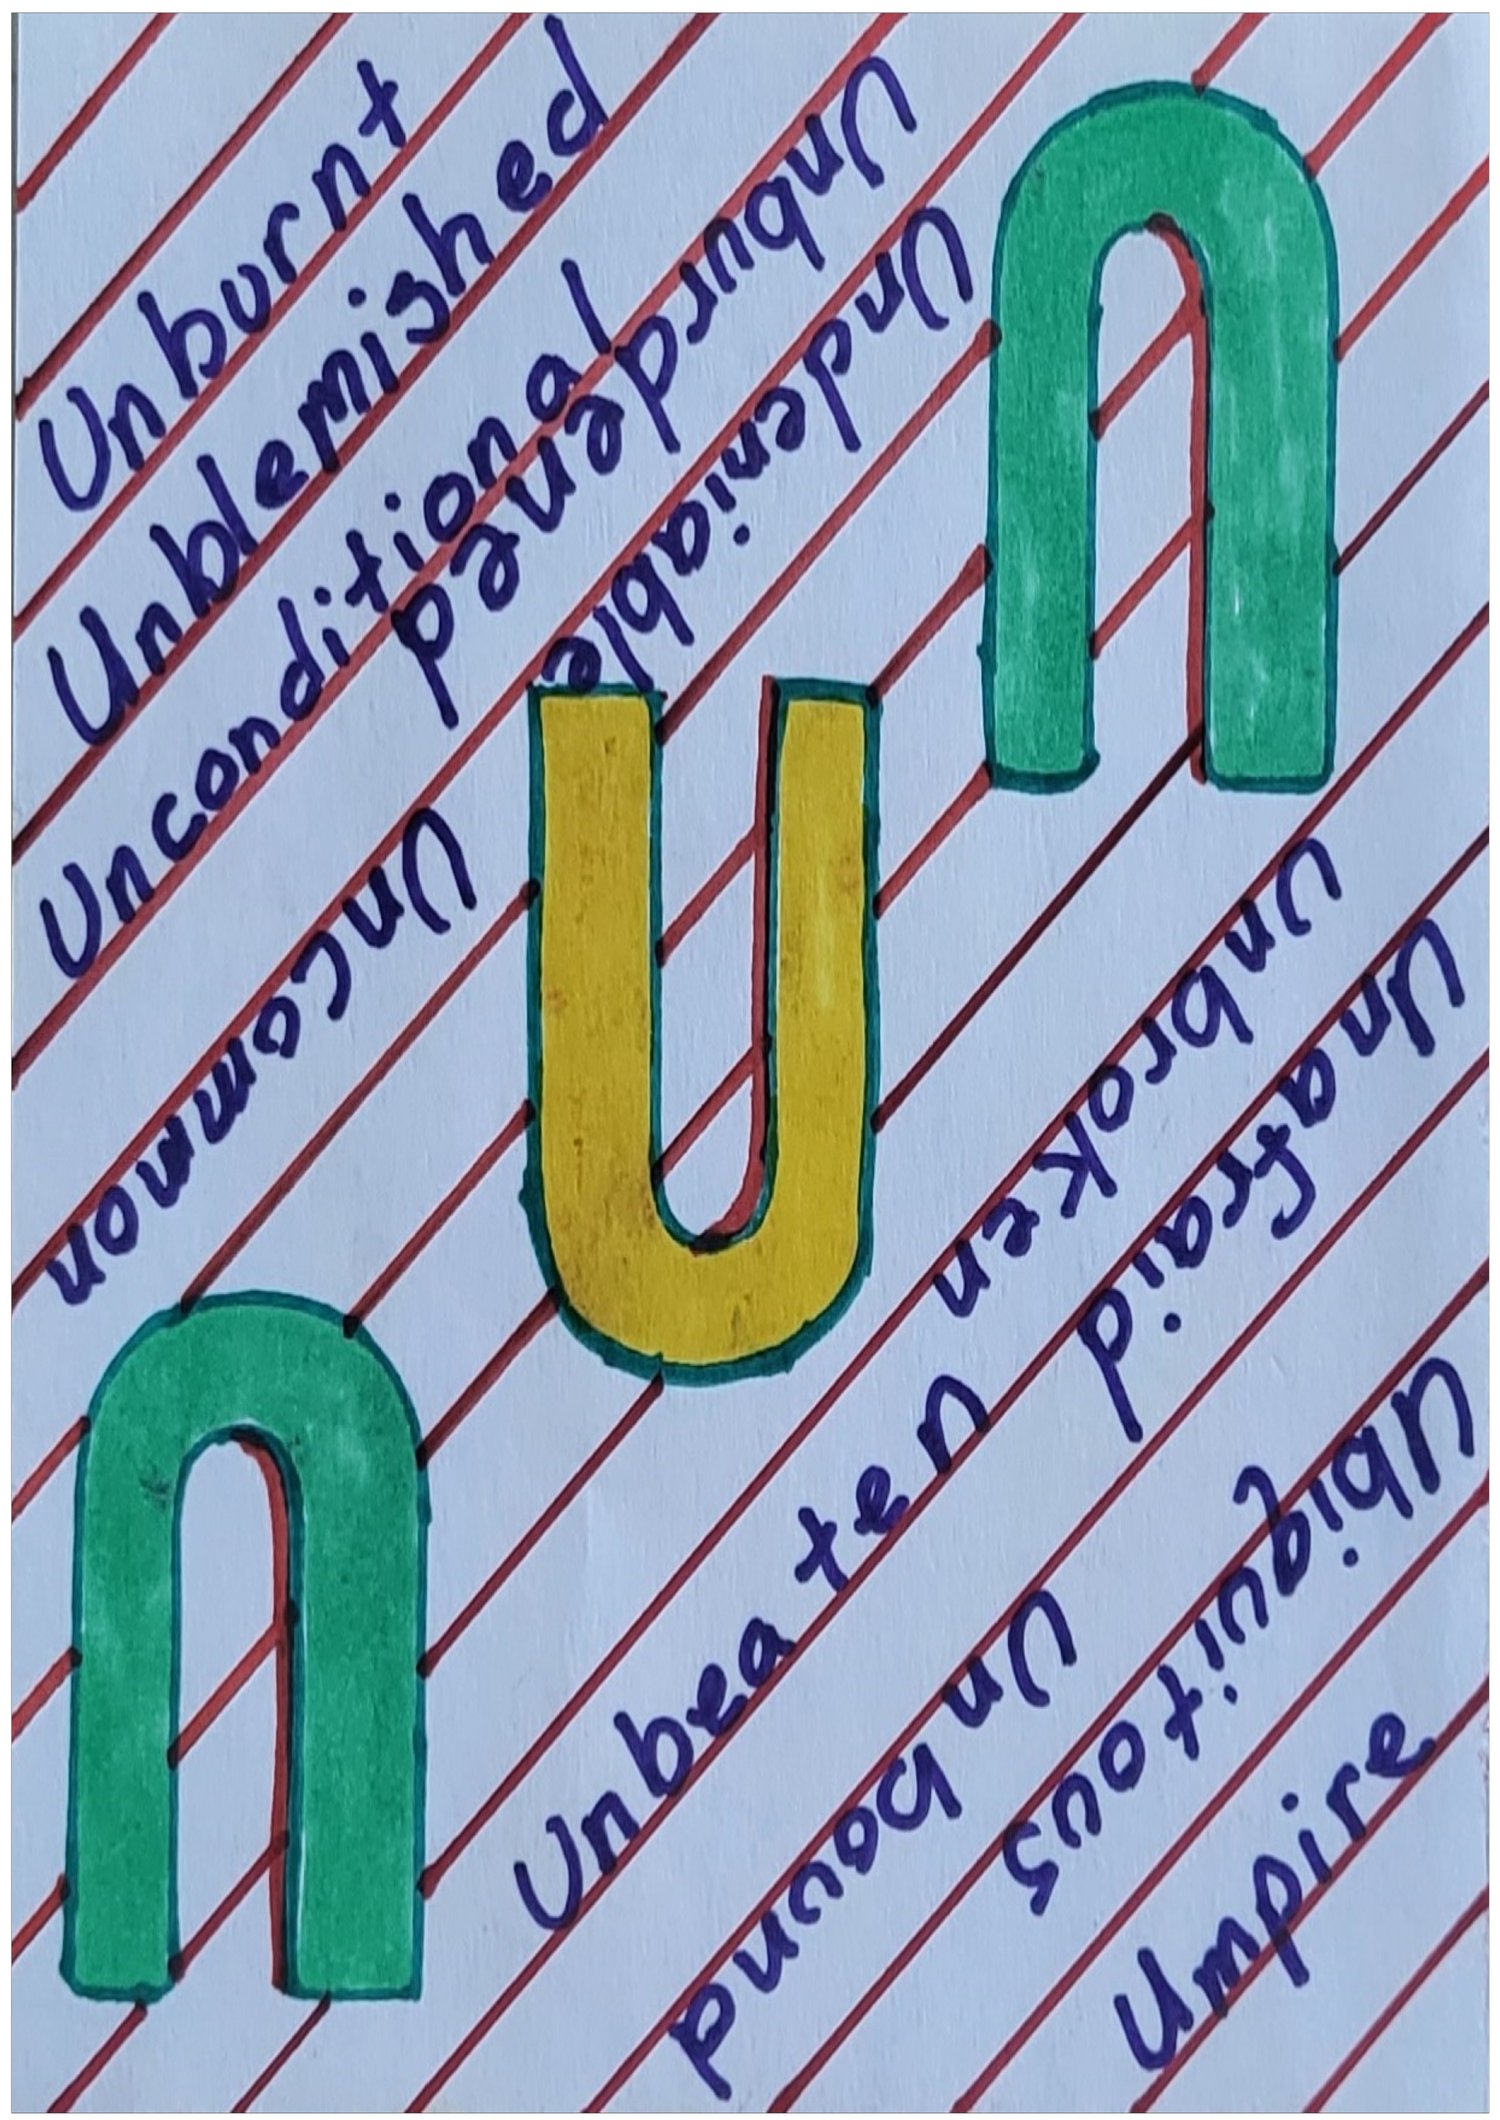 Unburnt
Unblemished
Unconditional
Unburdened
Undeniable
Uncommon
U
U
U
Unbroken
Unafraid
Unbeaten
Unbound
Ubiquitous
Umpire